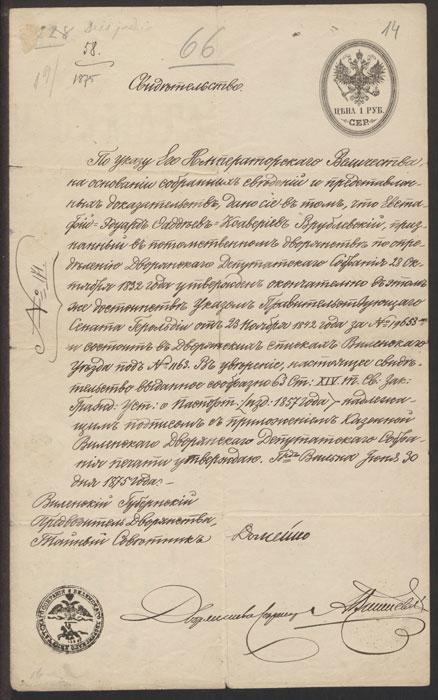 58.
1875
66
14
Свидѣтельство.
ЦѢНА 1 РУБ.
СЕР.
По указу Его Императорскаго Величества,
на основаніи собранныхъ свѣдѣній и представлен-
ныхъ доказательствъ, дано сіе въ томъ, что Евста-
фій-Эдуардъ Ѳаддѣевъ-Ксаверіевъ Врублевскій, приз-
нанный въ потомственномъ дворянствѣ по опре-
дѣленію Дворянскаго Депутатскаго Собранія 28 Ок-
тября 1832 года утвержденъ окончательно въ этомъ
же достоинствѣ Указомъ Правительствующаго
Сената Герольдіи отъ 23 Ноября 18 2 года за № 9653
и состоитъ въ Дворянскихъ спискахъ Виленскаго
Уѣзда подъ № 1163. Въ увѣреніе, настоящее свидѣ-
тельство выданное сообразно 63 Ст: XIV т. Св. Зак:
Гражд: Уст: о Паспорт: /изд: 1857 года/ надлежа-
щимъ подписомъ съ приложеніемъ Казенной
Виленскаго Дворянскаго Депутатскаго Собра-
нія печати утверждаю. Гдъ Вильна Іюня 30
дня 1875 года:
Виленскій Губернскій
Предводитель Дворянства,
Тайный Совѣтникъ Домейко